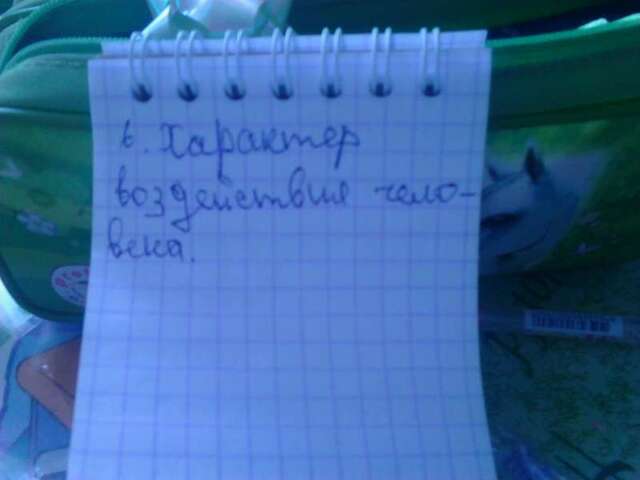 6. Характер
воздействия чело-
века.